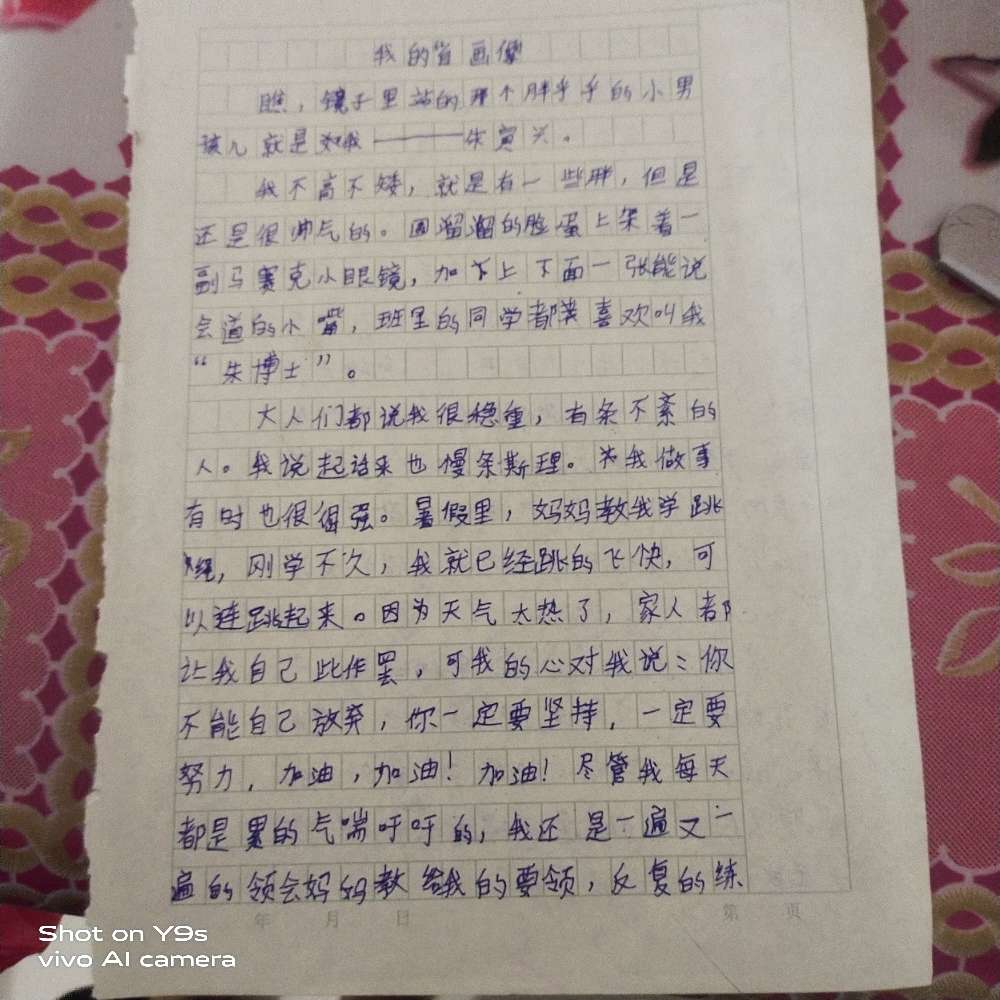 我的自画像
瞧，镜子里站的那个胖乎乎的小男
孩儿就是我——朱寅兴。
我不高不矮，就是有一些胖，但是
还是很帅气的。圆溜溜的脸蛋上架着一
副马赛克小眼镜，加下上下面一张能说
会道的小嘴，班里的同学都喜欢叫我
“朱博士”。
大人们都说我很稳重，有条不紊的
人。我说起话来也慢条斯理。我做事
有时也很倔强。暑假里，妈妈教我学跳
绳，刚学不久，我就已经跳的飞快，可
以连跳起来。因为天气太热了，家人都
让我自己此作罢，可我的心对我说：你
不能自己放弃，你一定要坚持，一定要
努力，加油，加油！加油！尽管我每天
都是累的气喘吁吁的，我还是一遍又一
遍的领会妈妈教给我的要领，反复的练
年 月 日 第 页
Shot on Y9s
vivo AI camera